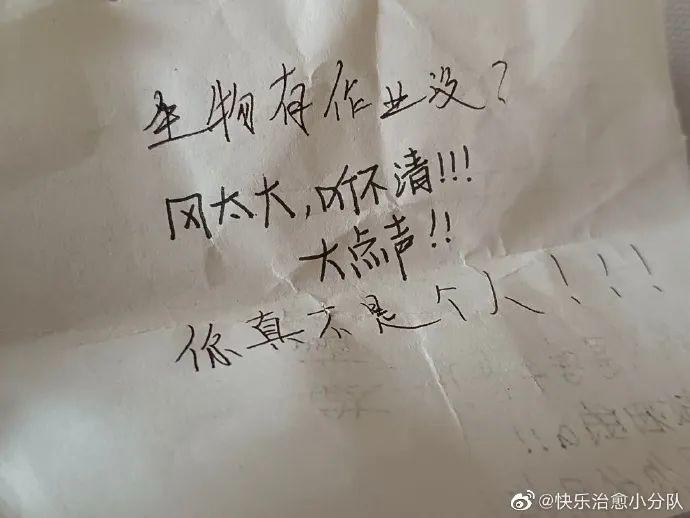 生物有作业没?
风太大,听不清!!!
大点声!!
你真不是个人!!!
@快乐治愈小分队